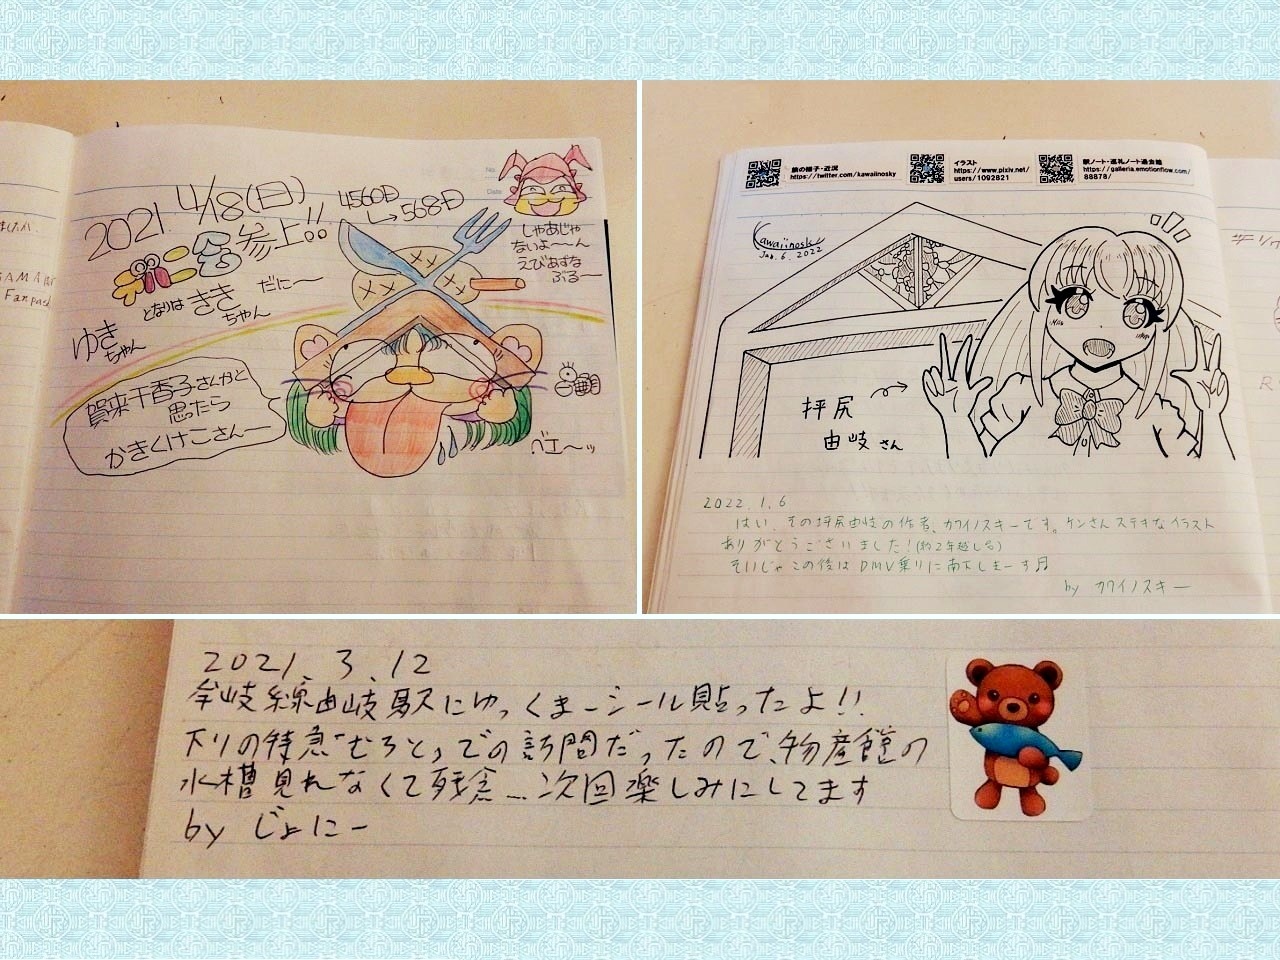 2021. 4/18(日)
4560D
→568D
参上!!
となりは
きき
ちゃん
だにー
ゆき
ちゃん
賀来千香子さんかと
思たら
かきくけこさんー
しゃあじゃ
ないよ〜〜ん
えびあずな
ぶるー
ベエ〜ッ
No.
Date
Fanpass
旅の様子・近況
https://twitter.com/kawaiinosky
イラスト
https://www.pixiv.net/
users/1092821
駅ノート・巡礼ノート過去絵
https://galleria.emotionflow.com/
88878/
Kawaiinosky
Jan. 6. 2022
坪尻
由岐さん
2022.1.6
はい、その坪尻由岐の作者、カワイノスキーです。ケンさんステキなイラスト
ありがとうございました!(約2年越し
そいじゃこの後はDMV乗りに南下しまーす♬
by カワイノスキー
2021.3.12
牟岐線由岐駅にゆっくまーシール貼ったよ!!
下りの特急"むろと"での訪問だったので、物産館の
水槽見れなくて残念…次回楽しみにしてます
by じょにー